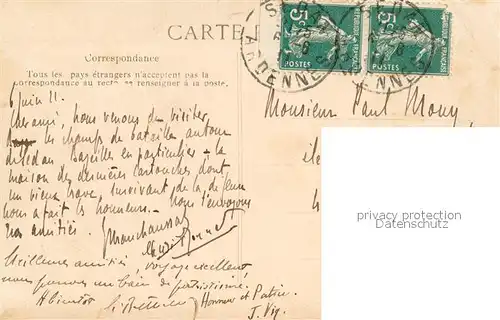 CARTE
SEDAN
ARDENNES
5c
5c
POSTES
POSTES
Correspondance
Tous les pays étrangers n'acceptent pas la
correspondance au recto, se renseigner à la poste.
6 Juin 11.
Cher ami, nous venons de visiter,
les champs de bataille autour
de Sedan Bazeilles en particulier - la
maison des dernières cartouches dont
un vieux brave, survivant de la défense
nous a fait les honneurs. nous t'envoyons
nos amitiés.
Meilleures amitiés, voyage excellent,
nous prenons un bain de patriotisme.
A bientôt
Honneur et Patrie.
J. Vig.
Monsieur Paul Mony,
privacy protection
Datenschutz